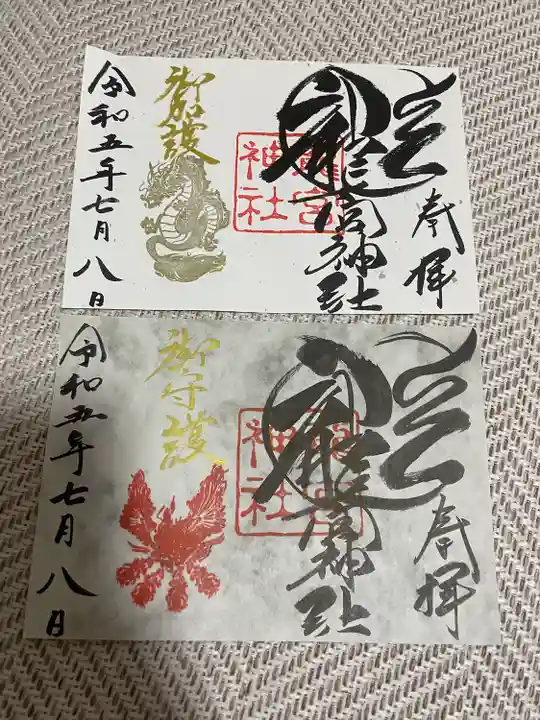 奉拝
龍
龍宮神社
龍宮神社
御加護
令和五年七月八日
奉拝
龍
龍宮神社
神社
御守護
令和五年七月八日